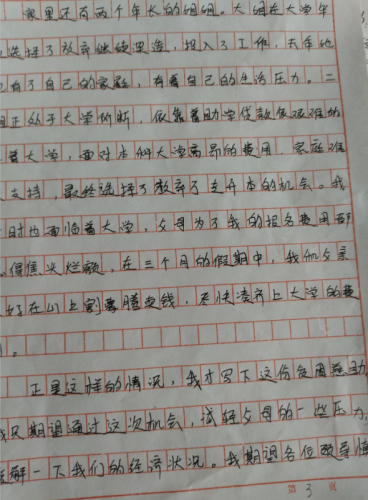 家里还有两个年长的姐姐。大姐在大学毕
选择了放弃继续深造，投入了工作，去年她
有了自己的家庭，有着自己的生活压力。二
姐正处于大学阶段，依靠着助学贷款艰难的
着大学，面对本科大学高昂的费用，家庭难
支持，最终选择了放弃了专升本的机会。我
时也面临着大学，父母为了我的报名费用都
得焦头烂额，在三个月的假期中，我和父亲
好在山上割毒腾卖钱，尽快凑齐上大学的费
。
正是这样的情况，我才写下这份贫困
我只期望通过这次机会，试轻父母的一些压力
缓解一下我们的经济状况。我期望各位领导
第 3 页